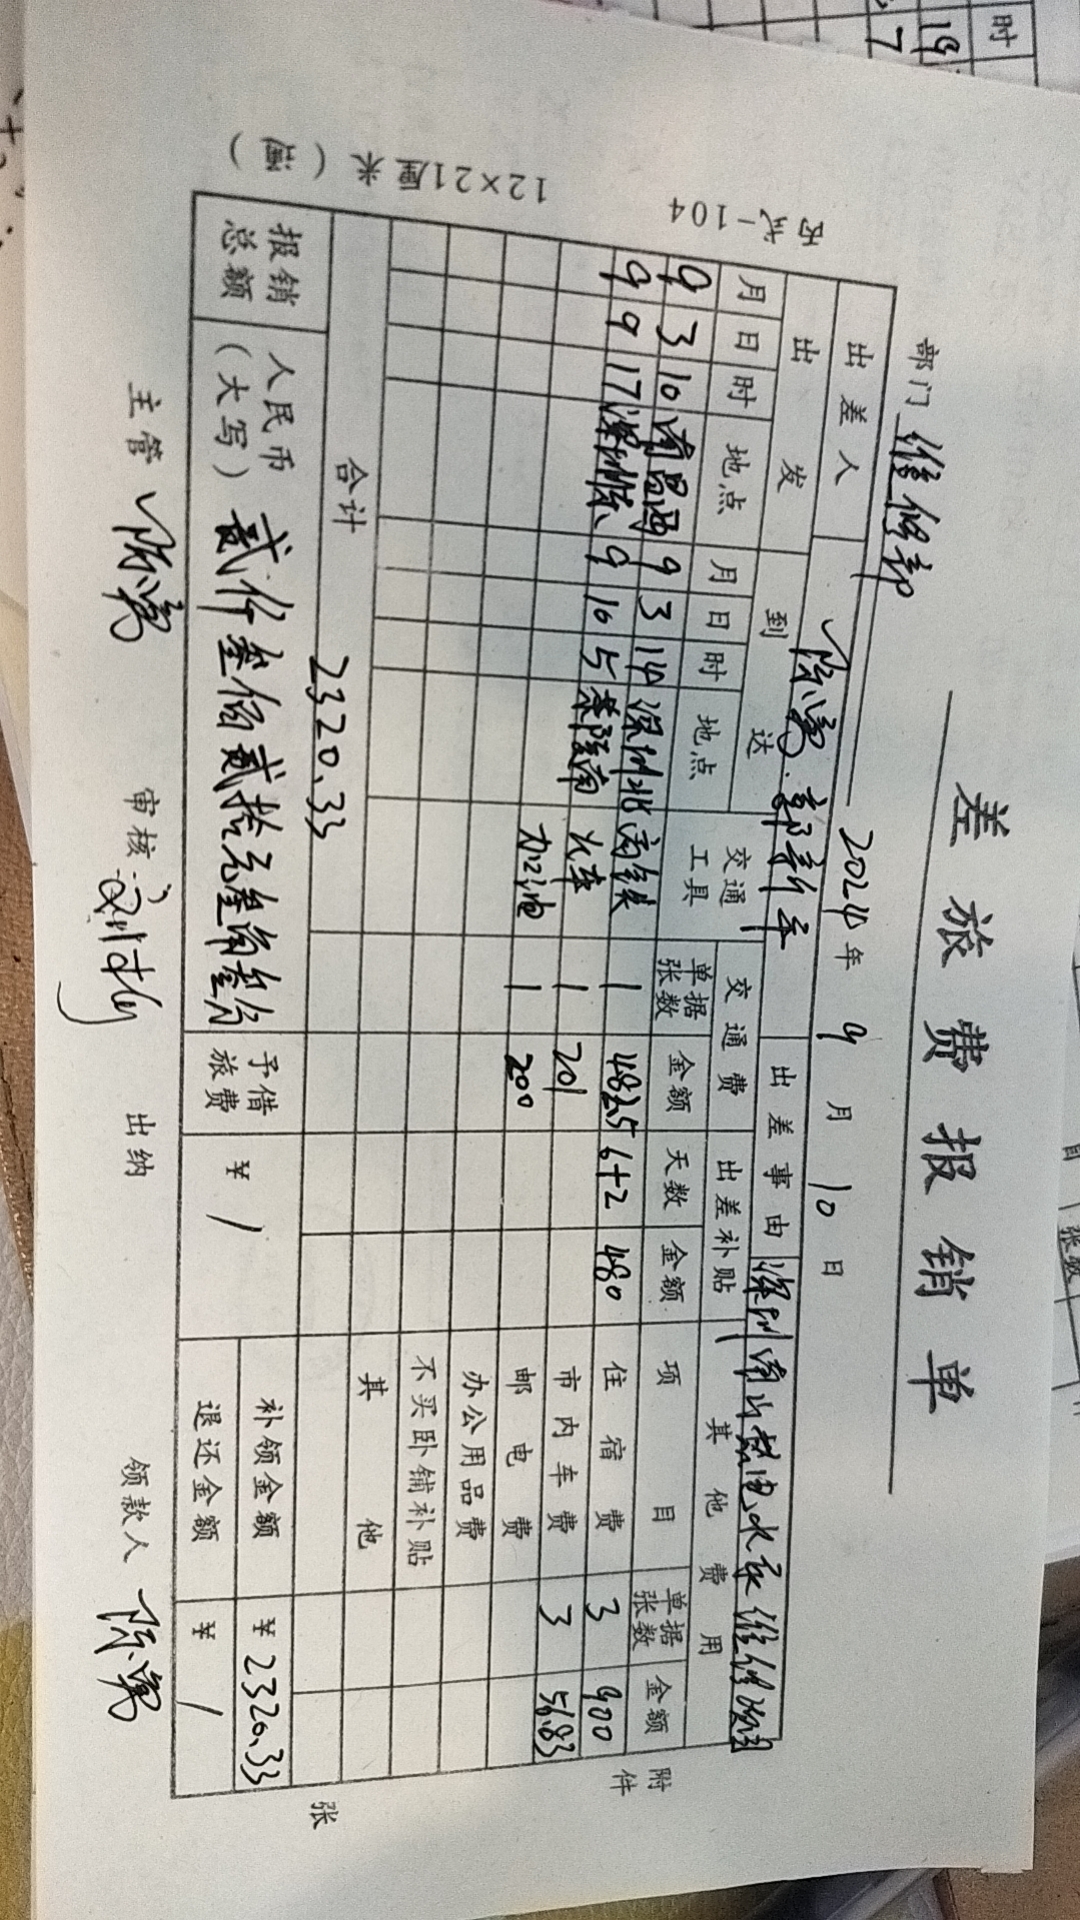 差旅费报销单
部门 维修部 2024年 9月 10日
出差人 陈 郭新平 出差事由 深圳南山热电水泵维修
出发 到达 交通工具 交通费 出差补贴 其他费用
月 日 时 地点 月 日 时 地点 单据张数 金额 天数 金额 项目 单据张数 金额
9 3 10 南昌西 9 3 14 深圳北 高铁 1 482.5 6+2 480 住宿费 3 900
9 9 17 深圳东 9 10 5 火车 1 201 市内车费 3 56.83
加油 1 200 邮电费
办公用品费
不买卧铺补贴
其他
合计 2320.33
报销总额 人民币（大写） 贰仟叁佰贰拾元叁角叁分 予借旅费 ¥ / 补领金额 ¥ 2320.33
退还金额 ¥ /
主管 陈 审核 出纳 领款人 陈
附件 张
丙式-104 12×21厘米（通）
时
19
7
张数